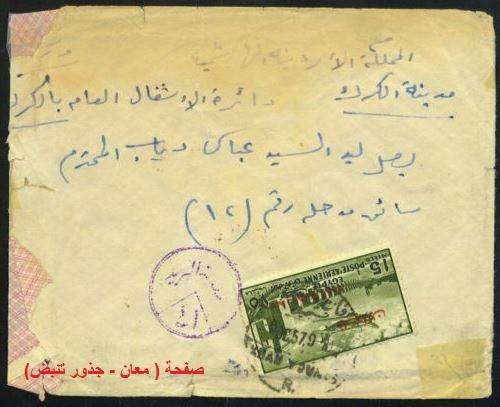 المملكة الأردنية الهاشمية
مدينة الكرك دائرة الاشغال العامة بالكرك
يصل ليد السيد عباس دياب المحترم
سائق مدحله رقم (١٢)
15 MILLS
POSTE AERIENNE
EGYPTE
PALESTINE
فلسطين
صفحة ( معان - جذور تنبض )